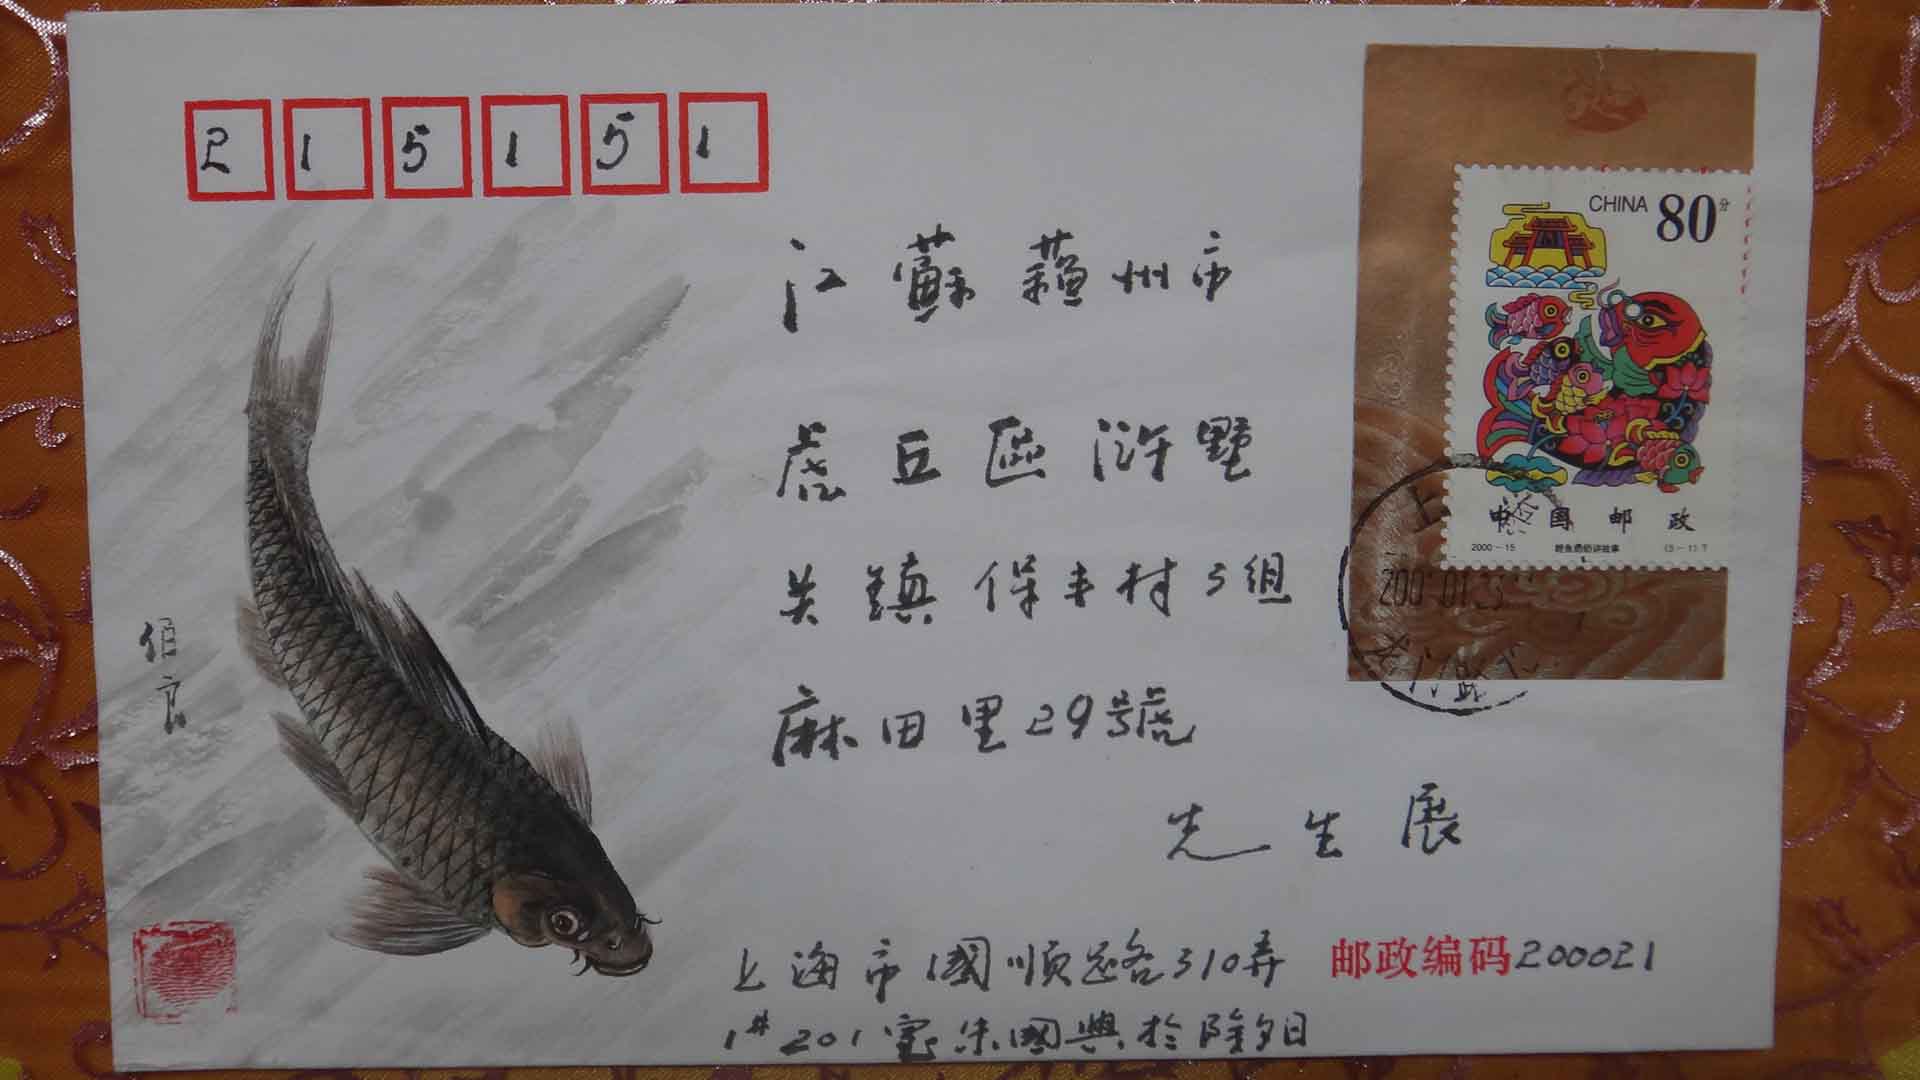 215151
CHINA 80分
江蘇蘓州市
虎丘區浒墅
关鎮保丰村3组
麻田里29号號
先生展
中国邮政
2000-15 鲤鱼跳龙门 (5-1)T
上
01.23
伯良
上海市國順路310弄 邮政编码200021
1#201室朱國興於除夕日